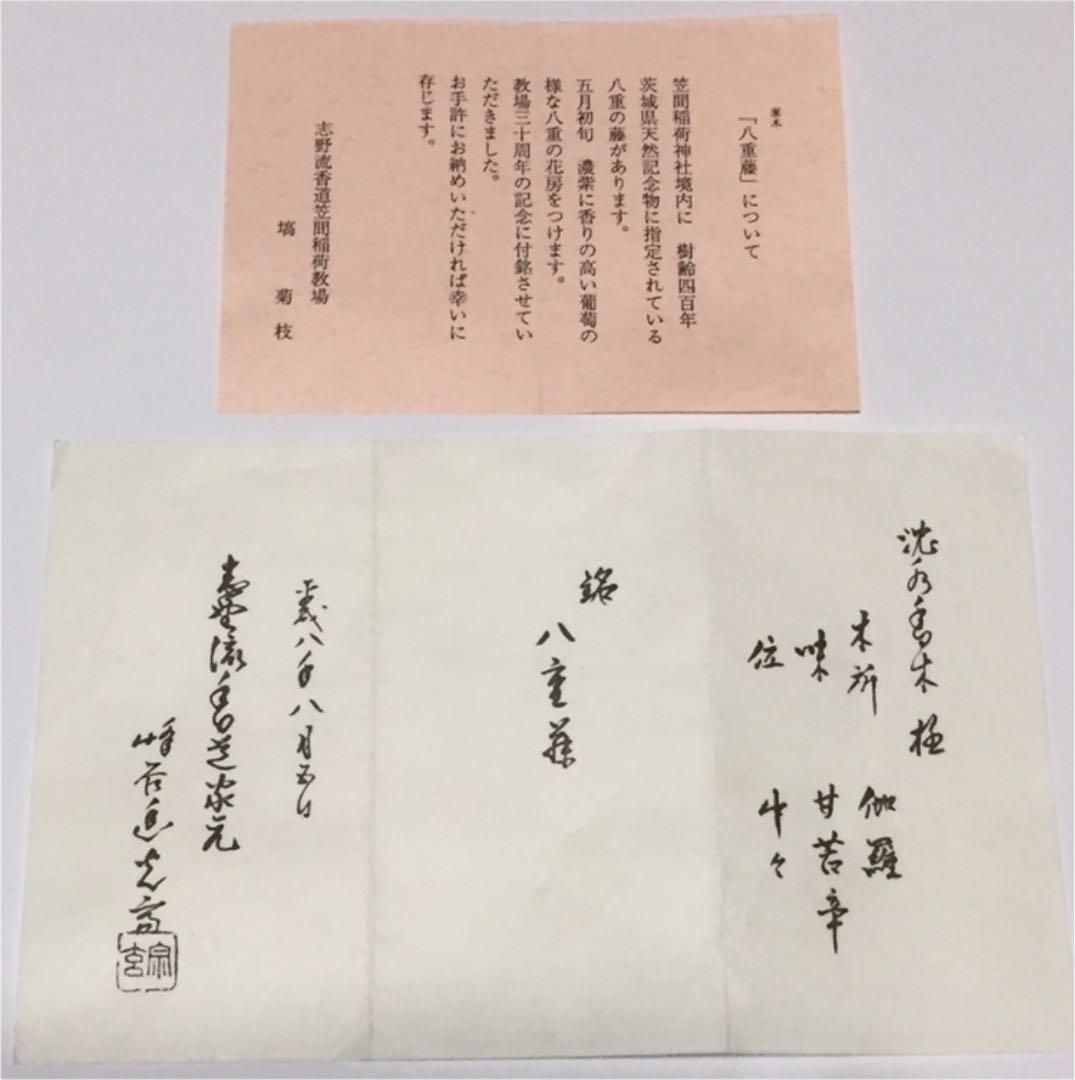 「八重藤」について
笠間稲荷神社境内に 樹齢四百年
茨城県天然記念物に指定されている
八重の藤があります。
五月初旬 濃紫に香りの高い葡萄の
様な八重の花房をつけます。
教場三十周年の記念に付銘させてい
ただきました。
お手許にお納めいただければ幸いに
存じます。
志野流香道笠間稲荷教場
塙 菊枝
沈水香木 極
木所 伽羅
味 甘苦辛
位 中々
銘
八重藤
平成八年八月五日
志野流香道家元
峰谷
宗玄